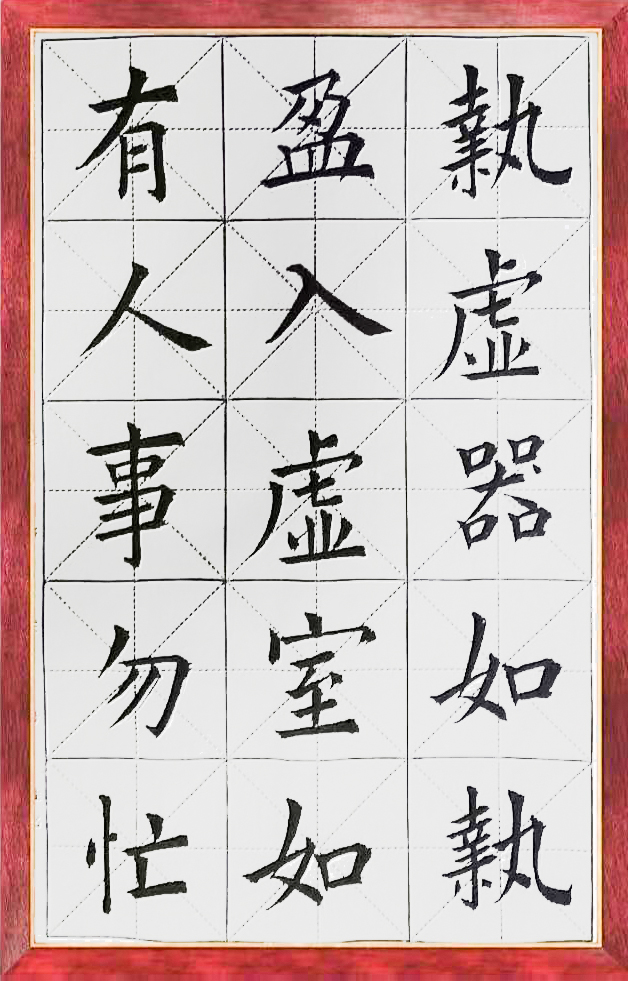 執虛器如執
盈入虛室如
有人事勿忙